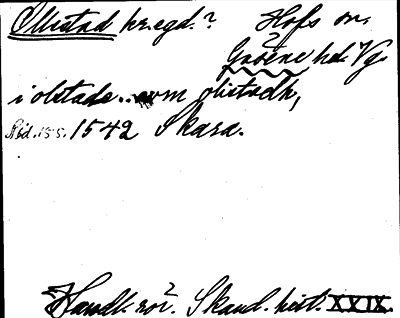 Olustad kr.egd.? Hofs sn.
Gäsene hd. Vg.
i olstade .. som olistadh,
Räd. 15 s. 1542 Skara.
Handl. rör. Skand. hist. XXIX.